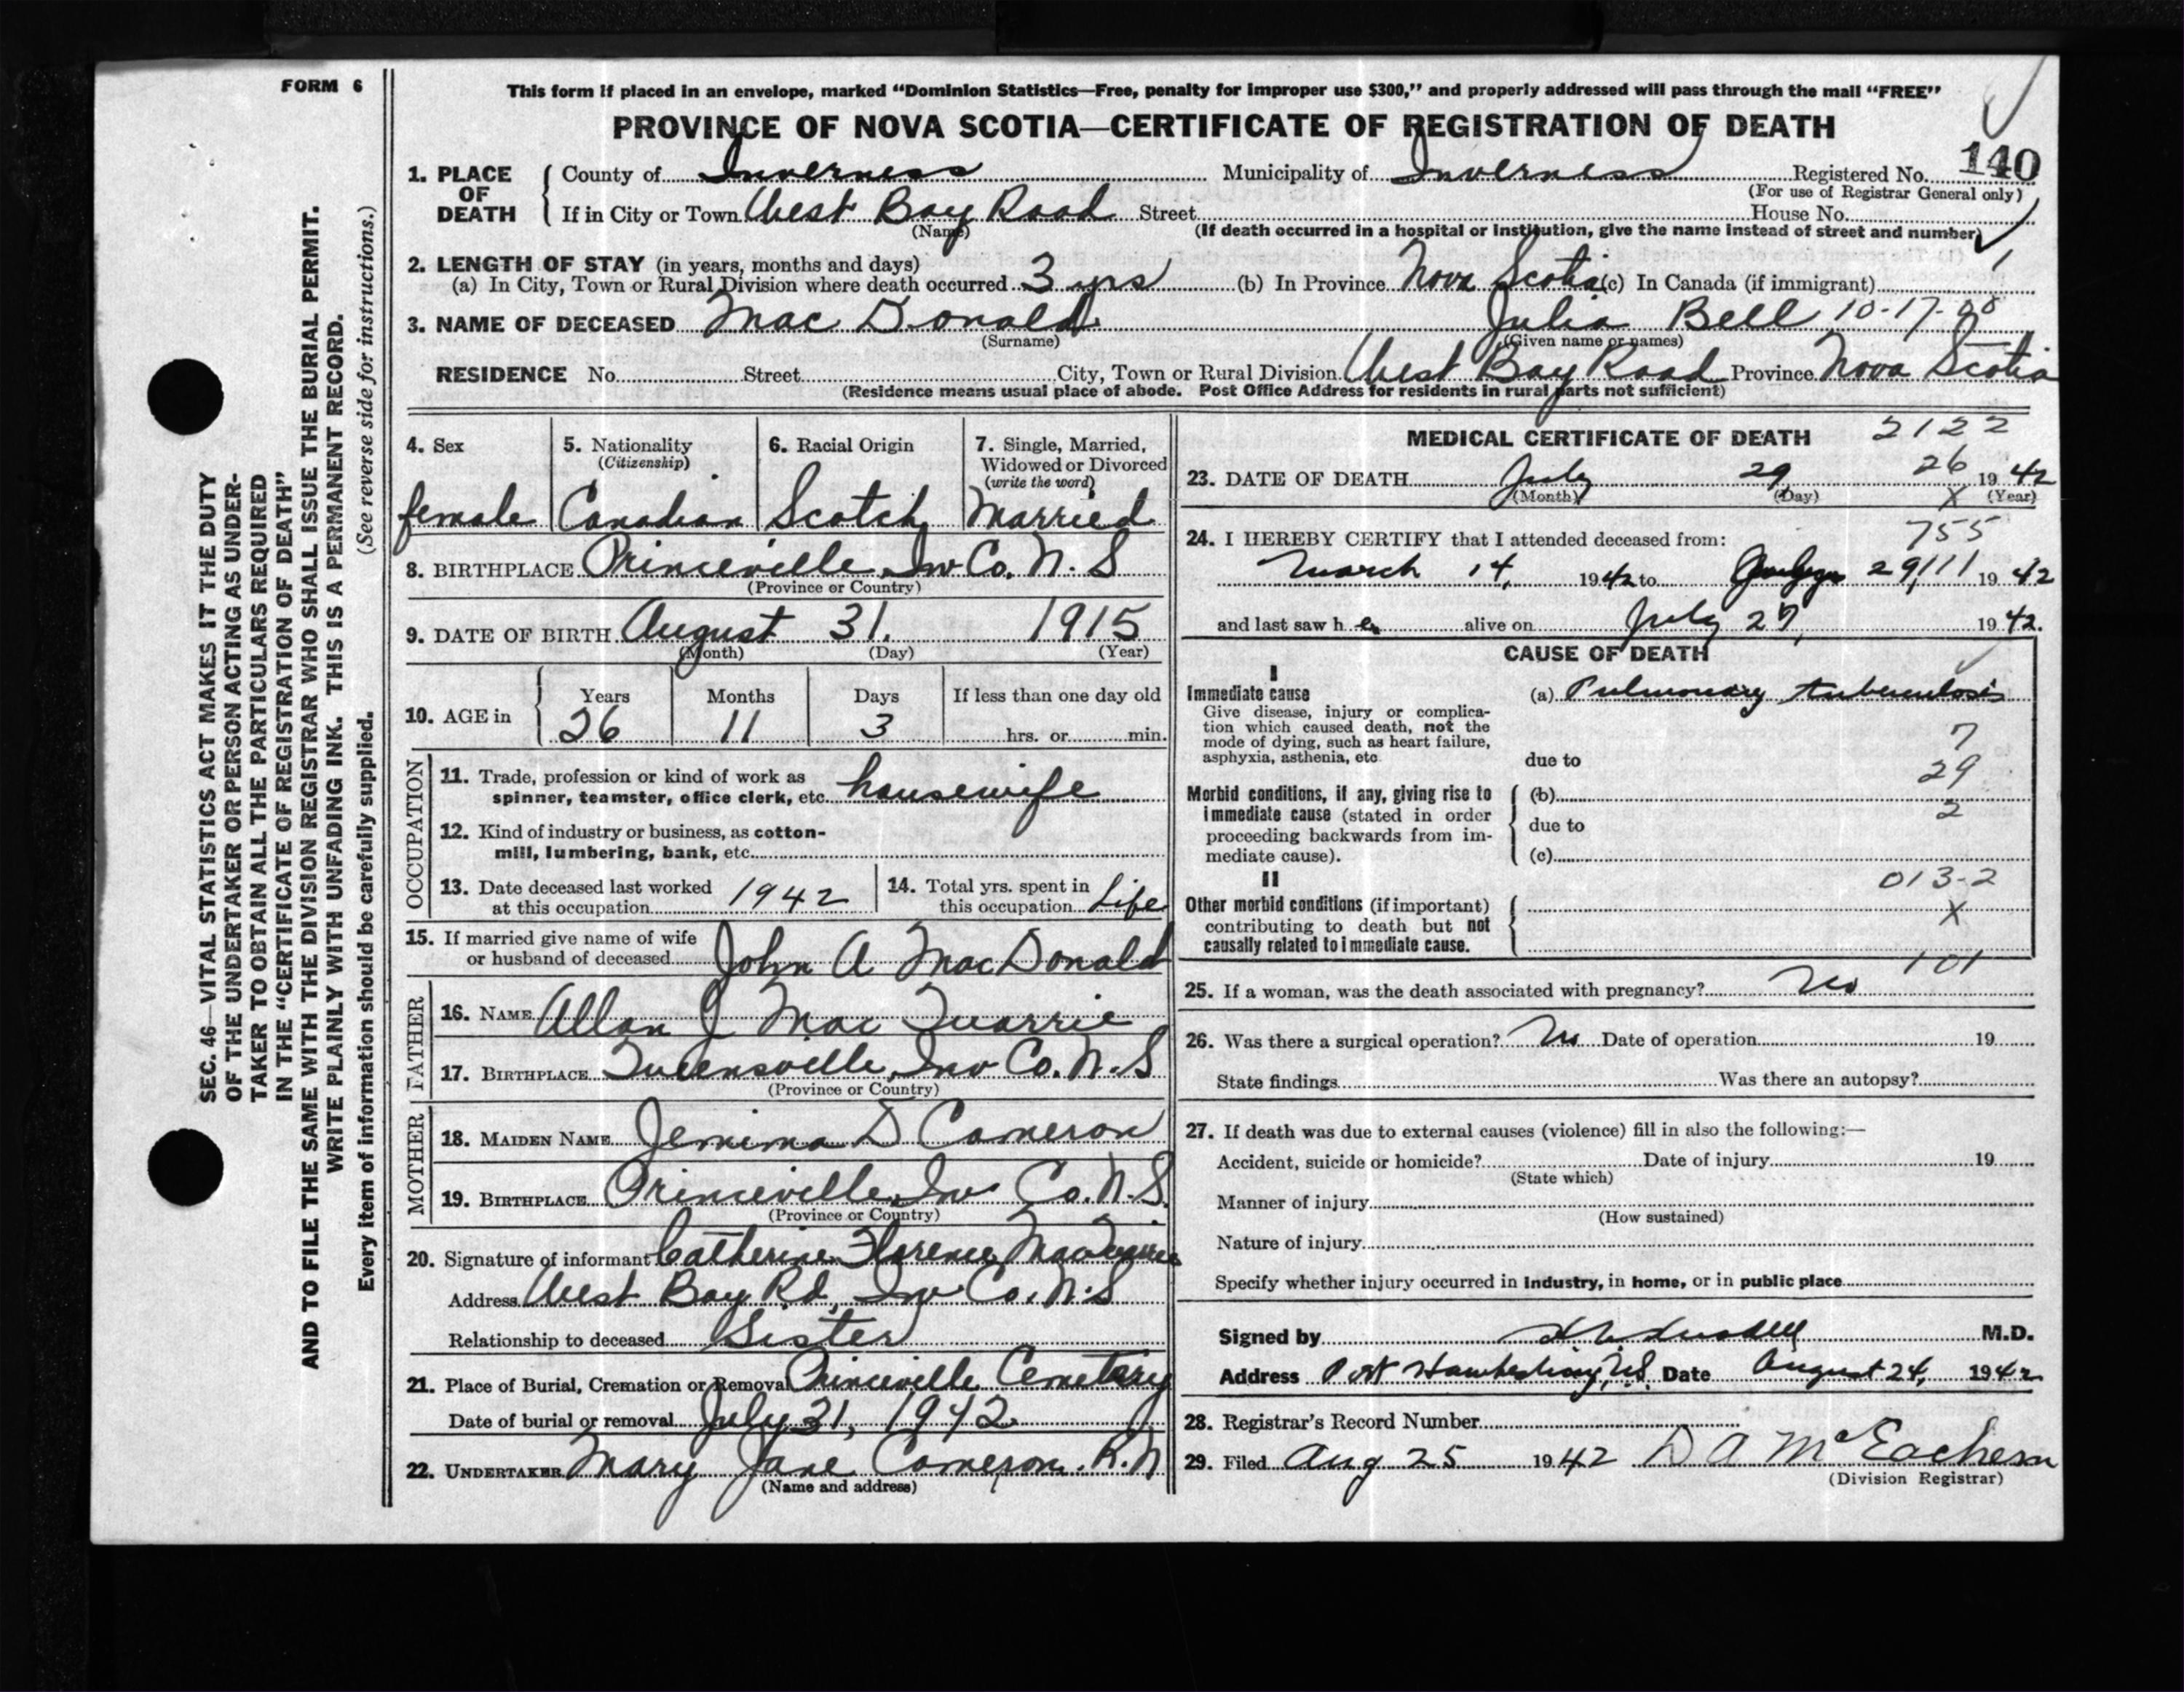 FORM 6
This form if placed in an envelope, marked "Dominion Statistics—Free, penalty for improper use $300," and properly addressed will pass through the mail "FREE"
PROVINCE OF NOVA SCOTIA—CERTIFICATE OF REGISTRATION OF DEATH
140
1. PLACE OF DEATH County of Inverness Municipality of Inverness Registered No.
(For use of Registrar General only)
If in City or Town West Bay Road Street House No.
(Name) (If death occurred in a hospital or institution, give the name instead of street and number)
2. LENGTH OF STAY (in years, months and days)
(a) In City, Town or Rural Division where death occurred 3 yrs (b) In Province Nova Scotia (c) In Canada (if immigrant)
3. NAME OF DECEASED Mac Donald Julia Bell 10-17-00
(Surname) (Given name or names)
RESIDENCE No. Street City, Town or Rural Division West Bay Road Province Nova Scotia
(Residence means usual place of abode. Post Office Address for residents in rural parts not sufficient)
SEC. 46—VITAL STATISTICS ACT MAKES IT THE DUTY
OF THE UNDERTAKER OR PERSON ACTING AS UNDER-
TAKER TO OBTAIN ALL THE PARTICULARS REQUIRED
IN THE "CERTIFICATE OF REGISTRATION OF DEATH"
AND TO FILE THE SAME WITH THE DIVISION REGISTRAR WHO SHALL ISSUE THE BURIAL PERMIT.
WRITE PLAINLY WITH UNFADING INK. THIS IS A PERMANENT RECORD.
Every item of information should be carefully supplied. (See reverse side for instructions.)
4. Sex 5. Nationality 6. Racial Origin 7. Single, Married,
(Citizenship) Widowed or Divorced
(write the word)
female Canadian Scotch Married
8. BIRTHPLACE Princeville, Inv Co. N. S
(Province or Country)
9. DATE OF BIRTH August 31. 1915
(Month) (Day) (Year)
10. AGE in Years Months Days If less than one day old
26 11 3 hrs. or min.
OCCUPATION
11. Trade, profession or kind of work as
spinner, teamster, office clerk, etc. housewife
12. Kind of industry or business, as cotton-
mill, lumbering, bank, etc.
13. Date deceased last worked
at this occupation 1942
14. Total yrs. spent in
this occupation Life
15. If married give name of wife
or husband of deceased John A MacDonald
FATHER
16. NAME Allan J Mac Quarrie
17. BIRTHPLACE Queensville, Inv Co. N. S
(Province or Country)
MOTHER
18. MAIDEN NAME Jemima D Cameron
19. BIRTHPLACE Princeville, Inv Co. N. S.
(Province or Country)
20. Signature of informant Catherine Florence MacQuarrie
Address West Bay Rd, Inv Co. N. S
Relationship to deceased Sister
21. Place of Burial, Cremation or Removal Princeville Cemetary
Date of burial or removal July 31, 1942
22. UNDERTAKER Mary Jane Cameron. R. N
(Name and address)
MEDICAL CERTIFICATE OF DEATH 2122
26
23. DATE OF DEATH July 29 1942
(Month) (Day) X (Year)
755
24. I HEREBY CERTIFY that I attended deceased from:
March 14, 1942 to 29, 111 1942
and last saw h er alive on July 27, 1942.
CAUSE OF DEATH
I
Immediate cause (a) Pulmonary tuberculosis
Give disease, injury or complica-
tion which caused death, not the
mode of dying, such as heart failure,
asphyxia, asthenia, etc.
due to
7
29
2
Morbid conditions, if any, giving rise to
immediate cause (stated in order
proceeding backwards from im-
mediate cause).
(b)
due to
(c)
II
013-2
X
Other morbid conditions (if important)
contributing to death but not
causally related to immediate cause.
101
25. If a woman, was the death associated with pregnancy? No
26. Was there a surgical operation? No Date of operation 19
State findings Was there an autopsy?
27. If death was due to external causes (violence) fill in also the following:—
Accident, suicide or homicide? Date of injury 19
(State which)
Manner of injury
(How sustained)
Nature of injury
Specify whether injury occurred in industry, in home, or in public place
Signed by M.D.
Address Port Hawkesbury, N.S. Date August 24, 1942
28. Registrar's Record Number
29. Filed Aug 25 1942 D A McEachern
(Division Registrar)